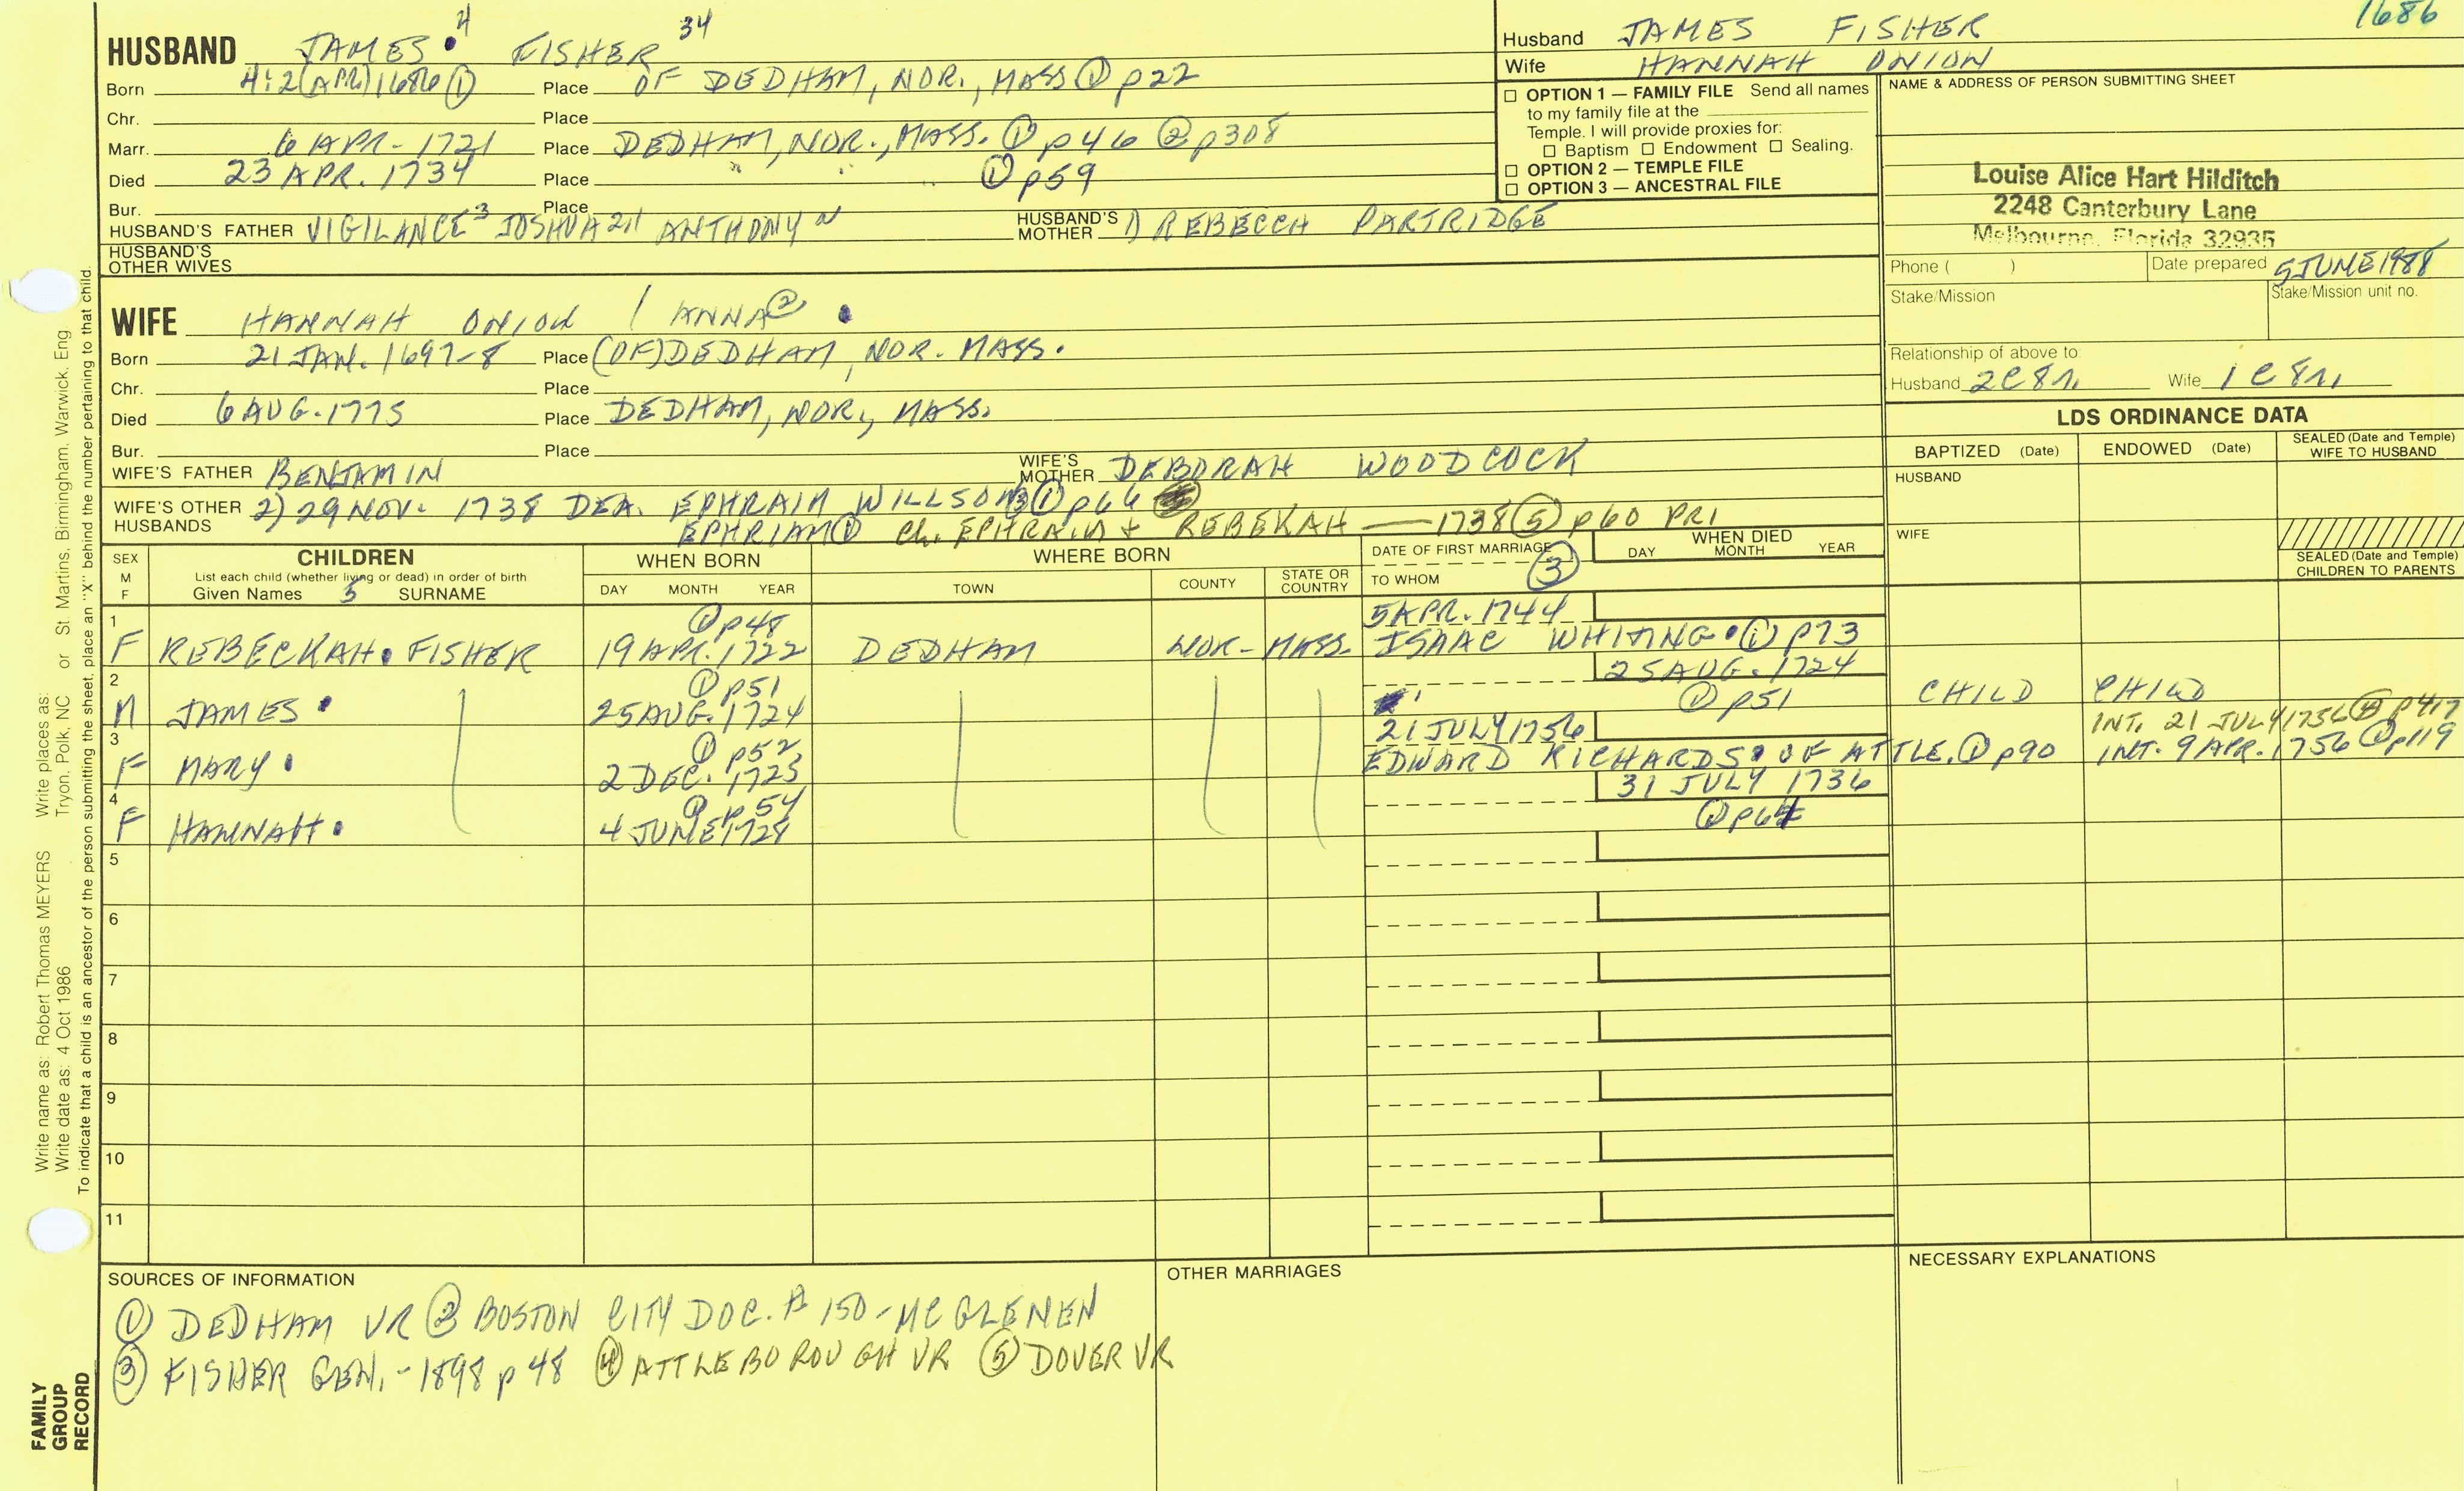 1686
HUSBAND JAMES 4 FISHER 34
Born 4:2(APR)1686 ① Place OF DEDHAM, NOR., MASS ① p22
Chr. Place
Marr. 6 APR- 1721 Place DEDHAM, NOR., MASS. ① p46 ② p308
Died 23 APR. 1734 Place " " " ① p59
Bur. Place
HUSBAND'S FATHER VIGILANCE 3 JOSHUA 2,1 ANTHONY HUSBAND'S MOTHER 1) REBECCH PARTRIDGE
HUSBAND'S OTHER WIVES
Husband JAMES FISHER
Wife HANNAH ONION
☐ OPTION 1 — FAMILY FILE Send all names
to my family file at the
Temple. I will provide proxies for:
☐ Baptism ☐ Endowment ☐ Sealing.
☐ OPTION 2 — TEMPLE FILE
☐ OPTION 3 — ANCESTRAL FILE
NAME & ADDRESS OF PERSON SUBMITTING SHEET
Louise Alice Hart Hilditch
2248 Canterbury Lane
Melbourne, Florida 32935
Phone ( ) Date prepared 5 JUNE 1988
Stake/Mission Stake/Mission unit no.
Relationship of above to
Husband 2C8r. Wife 1C8r,
WIFE HANNAH ONION / ANNA ②
Born 21 JAN. 1697-8 Place (OF) DEDHAM, NOR. MASS.
Chr. Place
Died 6 AUG. 1775 Place DEDHAM, NOR., MASS.
Bur. Place
WIFE'S FATHER BENJAMIN WIFE'S MOTHER DEBORAH WOODCOCK
WIFE'S OTHER HUSBANDS 2) 29 NOV. 1738 DEA. EPHRAIM WILLSON ③ ① p66
EPHRIAM ① Ch. EPHRAIM + REBEKAH — 1738 ⑤ p60 PR1
LDS ORDINANCE DATA
BAPTIZED (Date) ENDOWED (Date) SEALED (Date and Temple) WIFE TO HUSBAND
HUSBAND
WIFE
SEALED (Date and Temple) CHILDREN TO PARENTS
SEX M F
CHILDREN
List each child (whether living or dead) in order of birth
Given Names 5 SURNAME
WHEN BORN
DAY MONTH YEAR
WHERE BORN
TOWN COUNTY STATE OR COUNTRY
DATE OF FIRST MARRIAGE ③
TO WHOM
WHEN DIED
DAY MONTH YEAR
1 ① p48 5 APR. 1744
F REBECKAH. FISHER 19 APR. 1722 DEDHAM NOR- MASS. ISAAC WHITING. ① p73
2 ① p51 25 AUG. 1724
M JAMES 25 AUG. 1724 ① p51 CHILD CHILD
3 ① p52 21 JULY 1756 INT. 21 JULY 1756 ④ p417
F MARY. 2 DEC. 1725 EDWARD RICHARDS, OF ATTLE. ① p90 INT. 9 APR. 1756 ① p119
4 ① p54 31 JULY 1736
F HANNAH. 4 JUNE 1728 ① p64
5
6
7
8
9
10
11
SOURCES OF INFORMATION
① DEDHAM VR ② BOSTON CITY DOC. # 150 - MC GLENEN
③ FISHER GEN. - 1898 p 48 ④ ATTLEBOROUGH VR ⑤ DOVER VR
OTHER MARRIAGES
NECESSARY EXPLANATIONS
Write name as: Robert Thomas MEYERS Write places as: St. Martins, Birmingham, Warwick, Eng
Write date as: 4 Oct 1986 Tryon, Polk, NC or
To indicate that a child is an ancestor of the person submitting the sheet, place an "X" behind the number pertaining to that child.
FAMILY
GROUP
RECORD